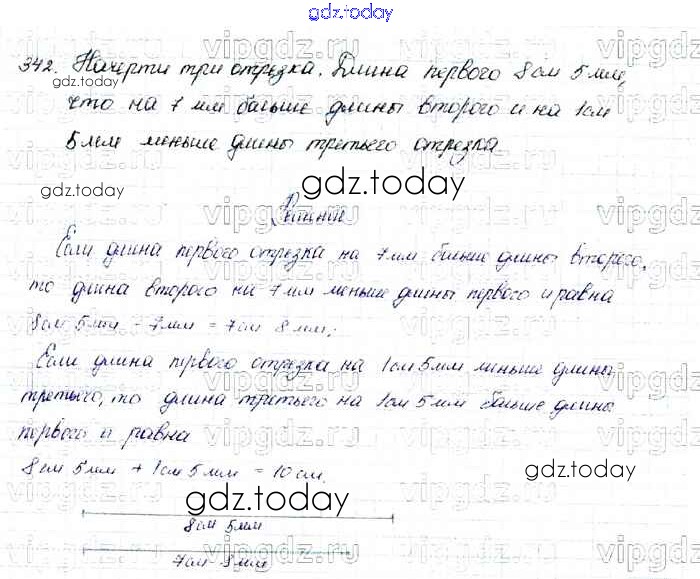 gdz.today
342. Начерти три отрезка. Длина первого 8см 5мм,
что на 7 мм больше длины второго и на 1см
5мм меньше длины третьего отрезка
gdz.today
gdz.today
gdz.today
Решение
Если длина первого отрезка на 7мм больше длины второго,
то длина второго на 7мм меньше длины первого и равна
8см 5мм - 7мм = 7см 8мм;
Если длина первого отрезка на 1см 5мм меньше длины
третьего, то длина третьего на 1см 5мм больше длины
первого и равна
8см 5мм + 1см 5мм = 10см.
gdz.today
gdz.today
8см 5мм
7см 8мм